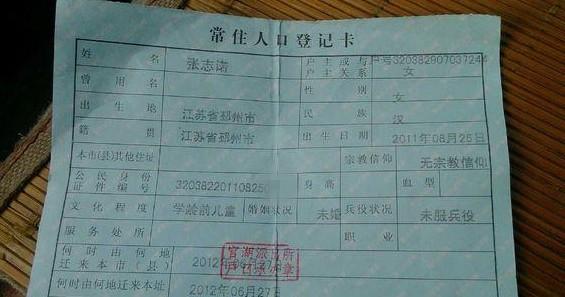 常住人口登记卡
姓名 张志诺 户主或与户主关系 户号320382907037244 女
曾用名 性别 女
出生地 江苏省邳州市 民族 汉
籍贯 江苏省邳州市 出生日期 2011年08月25日
本市(县)其他住址 宗教信仰 无宗教信仰
公民身份证件编号 32038220110825 身高 血型
文化程度 学龄前儿童 婚姻状况 未婚 兵役状况 未服兵役
服务处所 职业
何时由何地迁来本市(县) 2012年06月27日
官湖派出所
户口登记章
何时由何地迁来本址 2012年06月27日